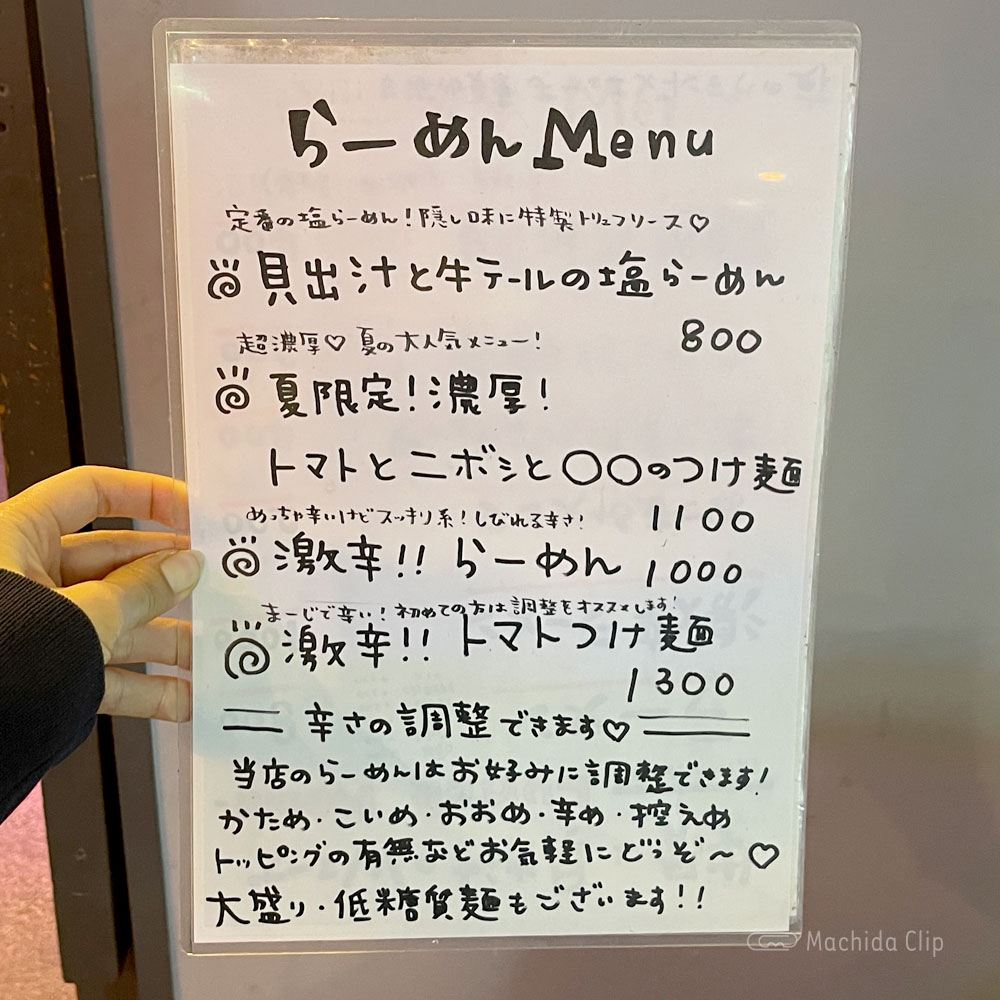 らーめんMenu
定番の塩らーめん!隠し味に特製トリュフソース♡
貝出汁と牛テールの塩らーめん
800
超濃厚♡夏の大人気メニュー!
夏限定!濃厚!
トマトとニボシと〇〇のつけ麺
1100
めっちゃ辛いけどスッキリ系!しびれる辛さ!
激辛!!らーめん 1000
まーじで辛い!初めての方は調整をオススメします!
激辛!!トマトつけ麺
1300
辛さの調整できます♡
当店のらーめんはお好みに調整できます!
かため・こいめ・おおめ・辛め・控えめ
トッピングの有無などお気軽にどうぞ〜♡
大盛り・低糖質麺もございます!!
Machida Clip